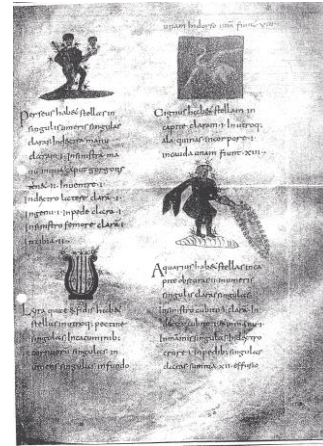 unam Indorso unā fiunt viii
Perseus habet stellas in
singulis umeris singulas
claras Indextra manu
claram i Insinistra ma
nu inuna caput gorgonis
Inuentre i
Indextro latere clarā i
Ingenu i Inpede clarā i
Insinistro femore clarā i
Intibia ii
Lyra quae et fidis habet
stellas inutroq; pectine
singulas Incacuminib;
cornuorū singulas in
umeris singulas infundo
Cignus habet stellam in
capite claram i Inutroq;
ala quinas incorpore i
incauda unam fiunt xiii
Aquarius habet stellas inca
pite obscuras ii inumeris
singulis claras singulas
Insinistro cubito i clarā In
dextro cubito i Inmanu i
Inmamis singulis Indextro
crure i Inpedib; singulas
claras summa xii effusio